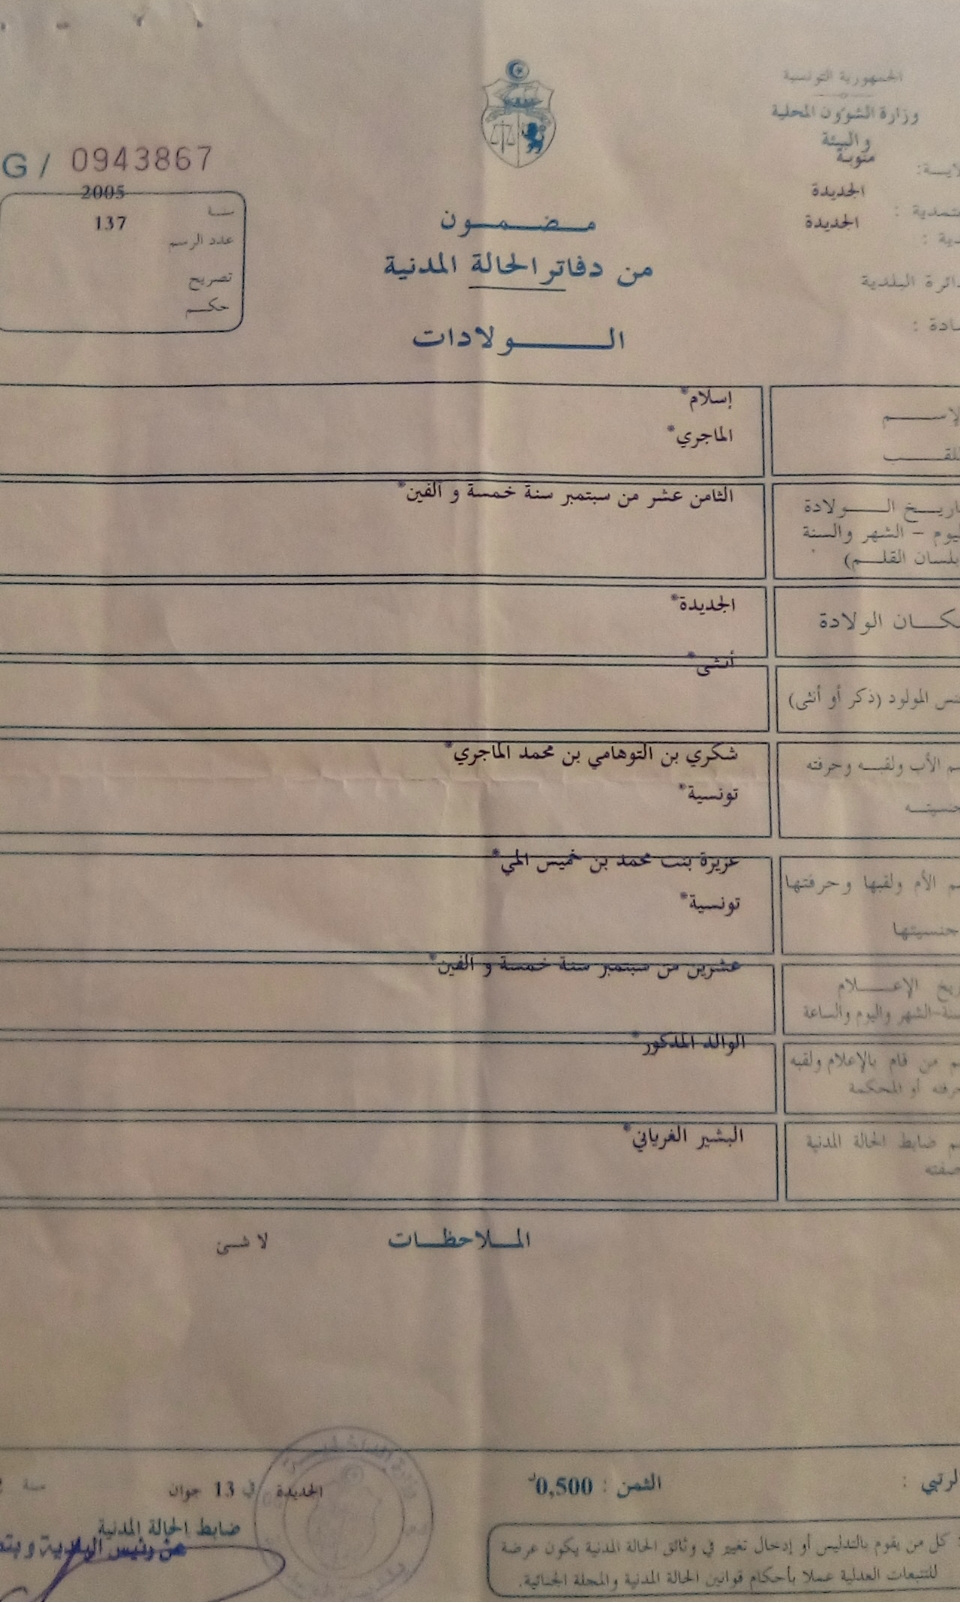 الجمهورية التونسية
وزارة الشؤون المحلية
والبيئة
منوبة
الجديدة
الجديدة
الدائرة البلدية
G / 0943867
سنة 2005
عدد الرسم 137
تصريح
حكم
مضمون
من دفاتر الحالة المدنية
الولادات
الإسم إسلام*
اللقب الماجري*
تاريخ الولادة الثامن عشر من سبتمبر سنة خمسة و الفين*
اليوم - الشهر والسنة
بلسان القلم)
مكان الولادة الجديدة*
أنثى*
جنس المولود (ذكر أو أنثى)
إسم الأب ولقبه وحرفته شكري بن التوهامي بن محمد الماجري*
جنسيته تونسية*
إسم الأم ولقبها وحرفتها عزيزة بنت محمد بن خميس المي*
جنسيتها تونسية*
عشرين من سبتمبر سنة خمسة و الفين*
تاريخ الإعلام
السنة-الشهر واليوم والساعة
الوالد المذكور*
إسم من قام بالإعلام ولقبه
حرفته أو المحكمة
إسم ضابط الحالة المدنية البشير الغرياني*
صفته
الملاحظات لا شئ
الثمن : 0,500د
الجديدة في 13 جوان سنة
ضابط الحالة المدنية
عن رئيس البلدية و
كل من يقوم بالتدليس أو إدخال تغيير في وثائق الحالة المدنية يكون عرضة
للتتبعات العدلية عملا بأحكام قوانين الحالة المدنية والمجلة الجنائية.